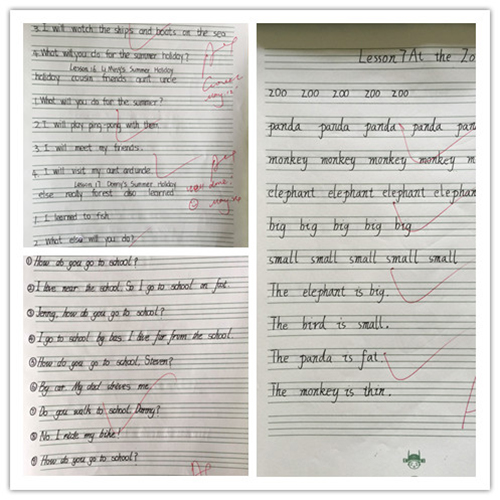 3. I will watch the ships and boats on the sea.
4. What will you do for the summer holiday?
Lesson 16 Li Ming's Summer Holiday
holiday cousin friends aunt uncle
1. What will you do for the summer?
2. I will play ping-pong with them.
3. I will meet my friends.
4. I will visit my aunt and uncle.
Lesson 17 Danny's Summer Holiday
else really forest also learned
1. I learned to fish.
2. What else will you do?
① How do you go to school?
② I live near the school. So I go to school on foot.
③ Jenny, how do you go to school?
④ I go to school by bus. I live far from the school.
⑤ How do you go to school, Steven?
⑥ By car. My dad drives me.
⑦ Do you walk to school, Danny?
⑧ No. I ride my bike!
⑨ How do you go to school?
Lesson 7 At the Zo
zoo zoo zoo zoo zoo
panda panda panda panda pan
monkey monkey monkey monkey m
elephant elephant elephant elephan
big big big big big
small small small small small
The elephant is big.
The bird is small.
The panda is fat.
The monkey is thin.